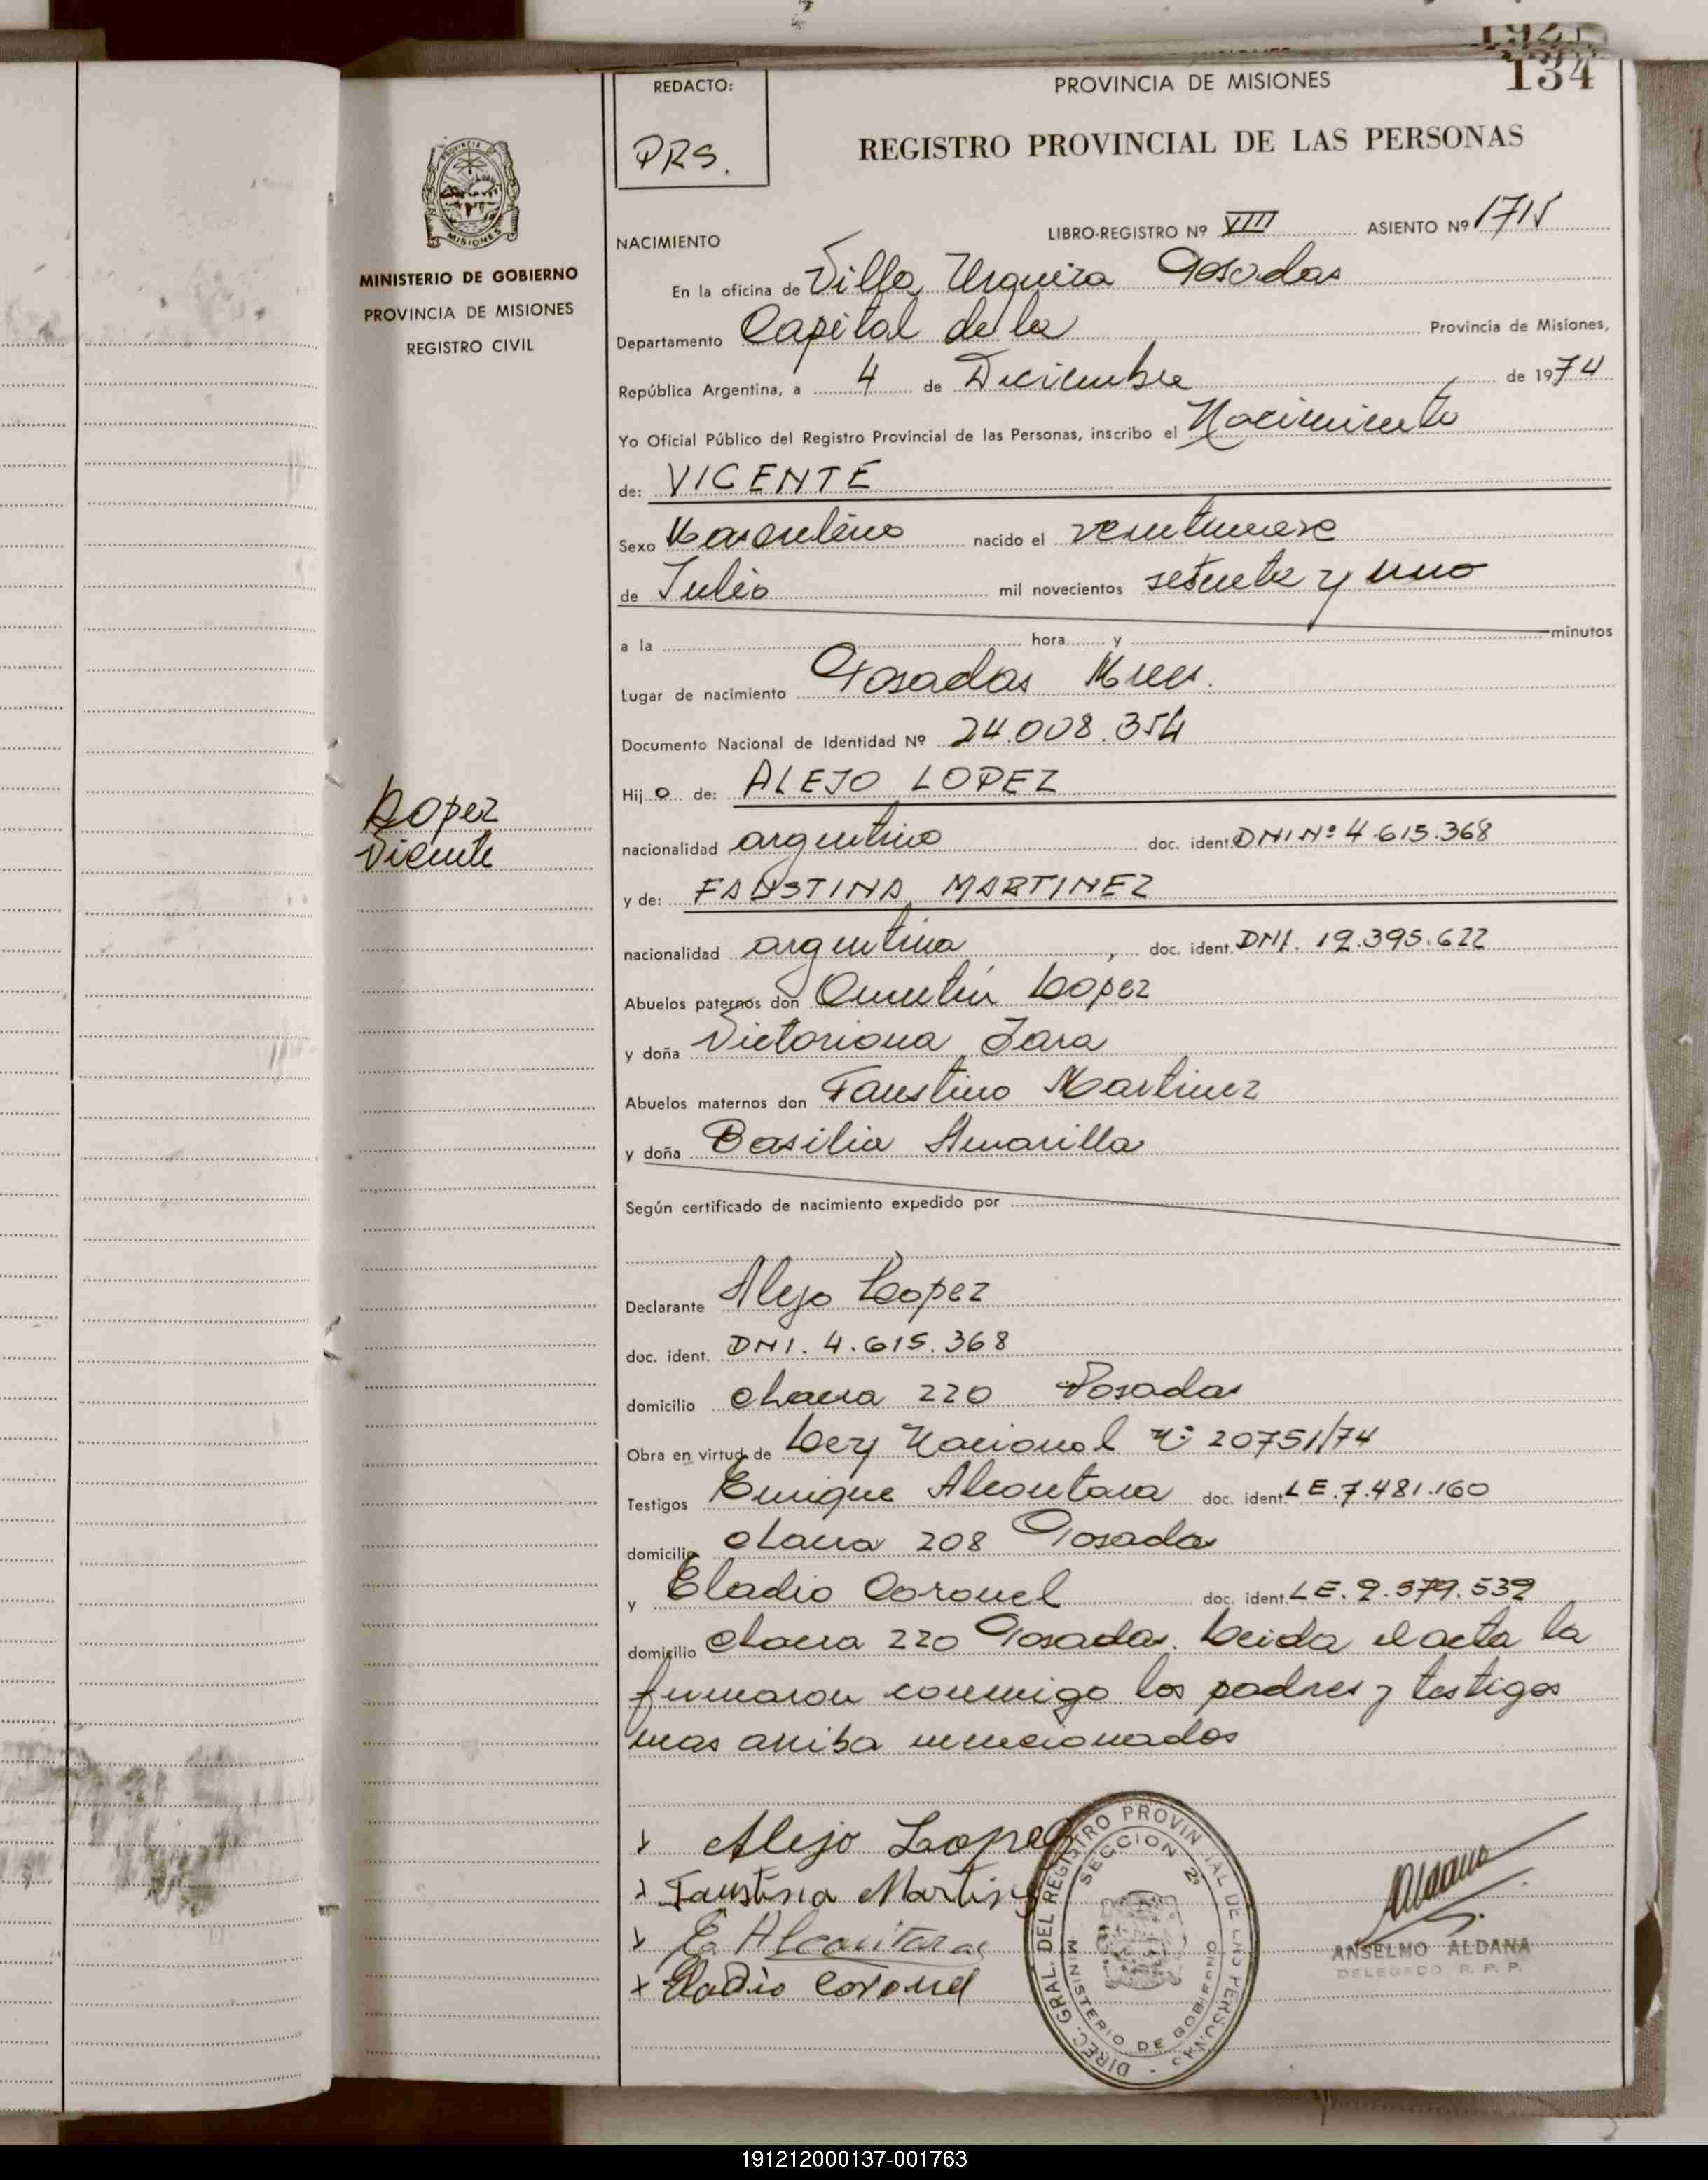 192
134
REDACTO:
PRS.
PROVINCIA DE MISIONES
REGISTRO PROVINCIAL DE LAS PERSONAS
PROVINCIA DE
MISIONES
MINISTERIO DE GOBIERNO
PROVINCIA DE MISIONES
REGISTRO CIVIL
NACIMIENTO
LIBRO-REGISTRO Nº VIII ASIENTO Nº 1715
En la oficina de Villa Urquiza Posadas
Departamento Capital de la Provincia de Misiones,
República Argentina, a 4 de Diciembre de 1974
Yo Oficial Público del Registro Provincial de las Personas, inscribo el Nacimiento
de: VICENTE
Sexo Masculino nacido el veintinueve
de Julio mil novecientos setenta y uno
a la hora y minutos
Lugar de nacimiento Posadas Mnes.
Documento Nacional de Identidad Nº 24.008.354
Hij o de: ALEJO LOPEZ
Lopez
Vicente
nacionalidad argentino doc. ident. DNI Nº 4.615.368
y de: FAUSTINA MARTINEZ
nacionalidad argentina, doc. ident. DNI. 12.395.622
Abuelos paternos don Quintín Lopez
y doña Victoriana Jara
Abuelos maternos don Faustino Martinez
y doña Basilia Amarilla
Según certificado de nacimiento expedido por
Declarante Alejo Lopez
doc. ident. DNI. 4.615.368
domicilio chacra 220 Posadas
Obra en virtud de Ley Nacional Nº 20751/74
Testigos Enrique Alcantara doc. ident. LE.7.481.160
domicilio chacra 208 Posadas
y Eladio Coronel doc. ident. LE.9.579.539
domicilio chacra 220 Posadas. Leida el acta la
firmaron conmigo los padres y testigos
mas arriba mencionados
Alejo Lopez
Faustina Martinez
E. Alcantara
Eladio Coronel
DIREC. GRAL. DEL REGISTRO PROVINCIAL DE LAS PERSONAS -
SECCION 2ª
MINISTERIO DE GOBIERNO
Aldana
ANSELMO ALDANA
DELEGADO R. P. P.
191212000137-001763